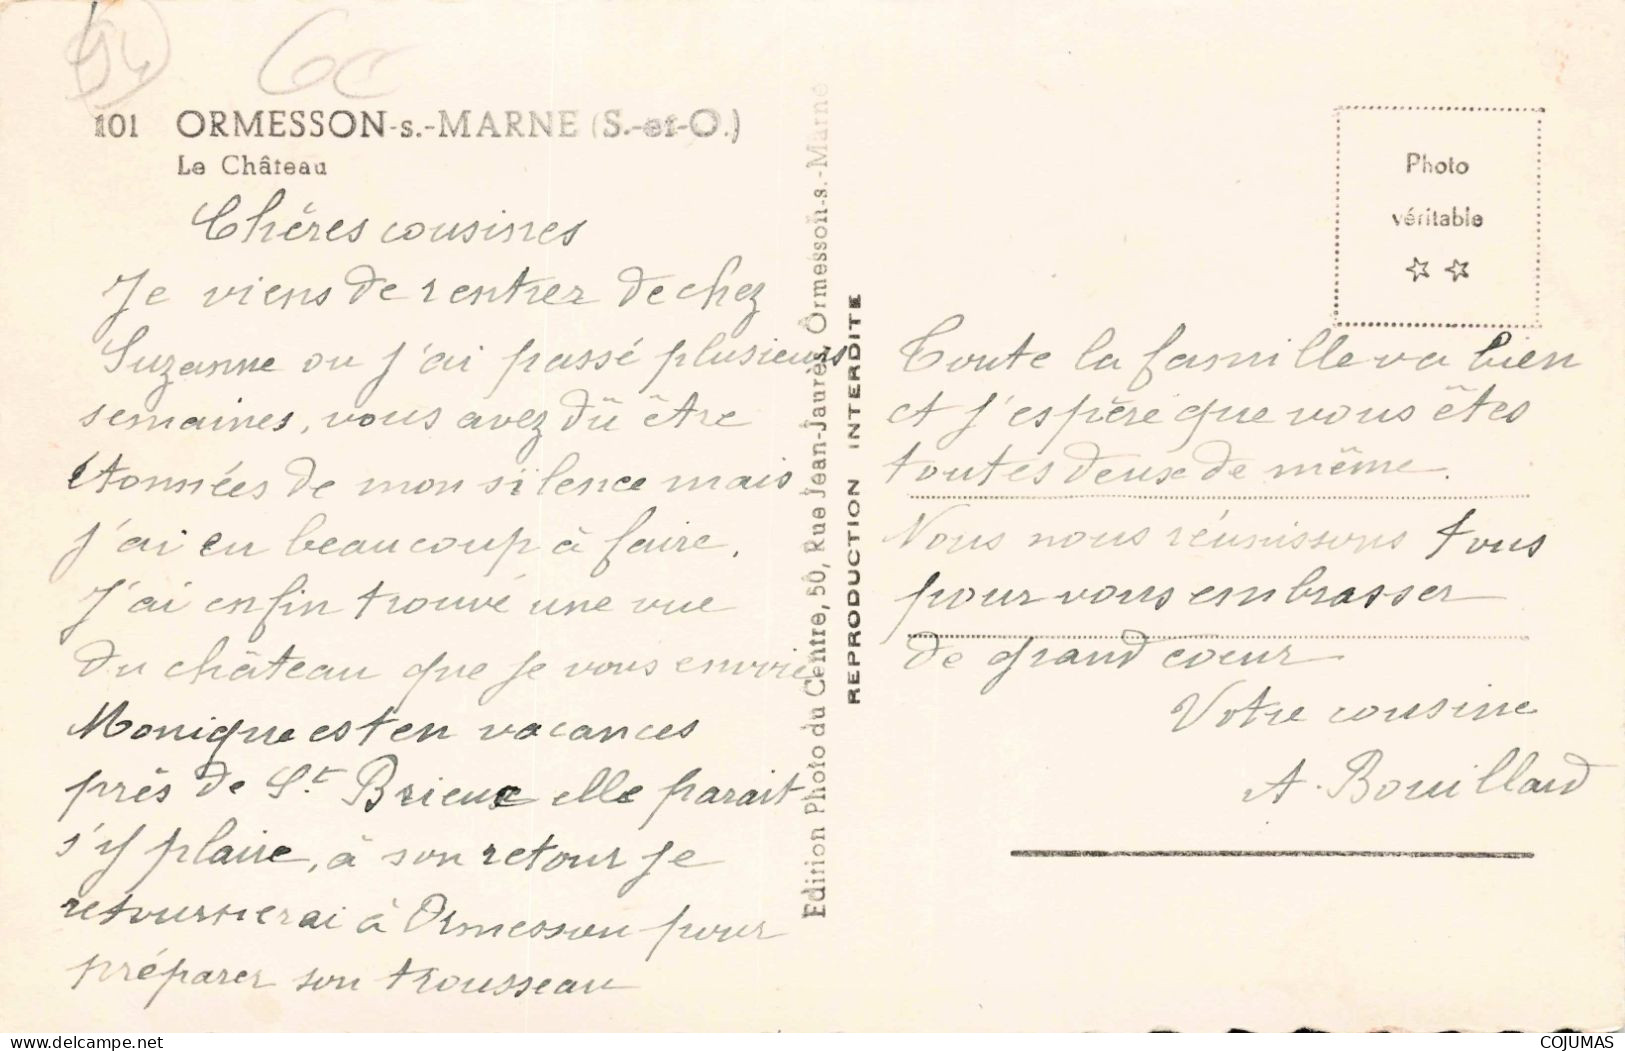 94
101 ORMESSON-s.-MARNE (S.-et-O.)
Le Château
Chères cousines
Je viens de rentrer de chez
Suzanne ou j'ai passé plusieurs
semaines, vous avez dû être
étonnées de mon silence mais
j'ai eu beaucoup à faire.
J'ai enfin trouvé une vue
du château que je vous envoie
Monique est en vacances
près de St. Brieuc elle parait
s'y plaire, à son retour je
retournerai à Ormesson pour
préparer son trousseau
Edition Photo du Centre, 50, Rue Jean-Jaurès, Ormesson-s.-Marne
REPRODUCTION INTERDITE
Photo
véritable
☆ ☆
Toute la famille va bien
et j'espère que vous êtes
toutes deux de même.
Nous nous réunissons tous
pour vous embrasser
de grand coeur
Votre cousine
A. Bouillard
delcampe.net
COJUMAS